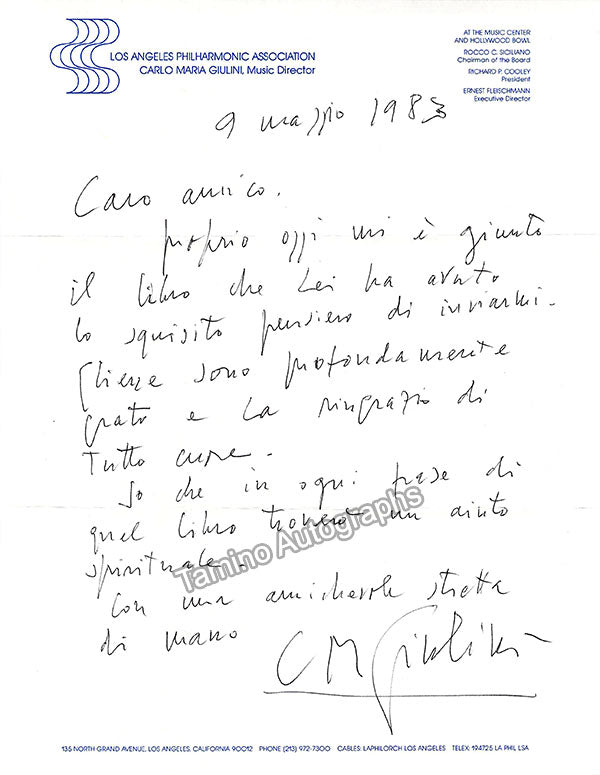 LOS ANGELES PHILHARMONIC ASSOCIATION
CARLO MARIA GIULINI, Music Director
AT THE MUSIC CENTER
AND HOLLYWOOD BOWL
ROCCO C. SICILIANO
Chairman of the Board
RICHARD P. COOLEY
President
ERNEST FLEISCHMANN
Executive Director
9 maggio 1983
Caro amico.
proprio oggi mi è giunto
il libro che Lei ha avuto
lo squisito pensiero di inviarmi.
Gliene sono profondamente
grato e La ringrazio di
Tutto cuore.
So che in ogni frase di
quel libro troverò un aiuto
spirituale.
Con una amichevole stretta
di mano
CM Giulini
Tamino Autographs
135 NORTH GRAND AVENUE, LOS ANGELES, CALIFORNIA 90012 PHONE (213) 972-7300 CABLES: LAPHILORCH LOS ANGELES TELEX: 194725 LA PHIL LSA